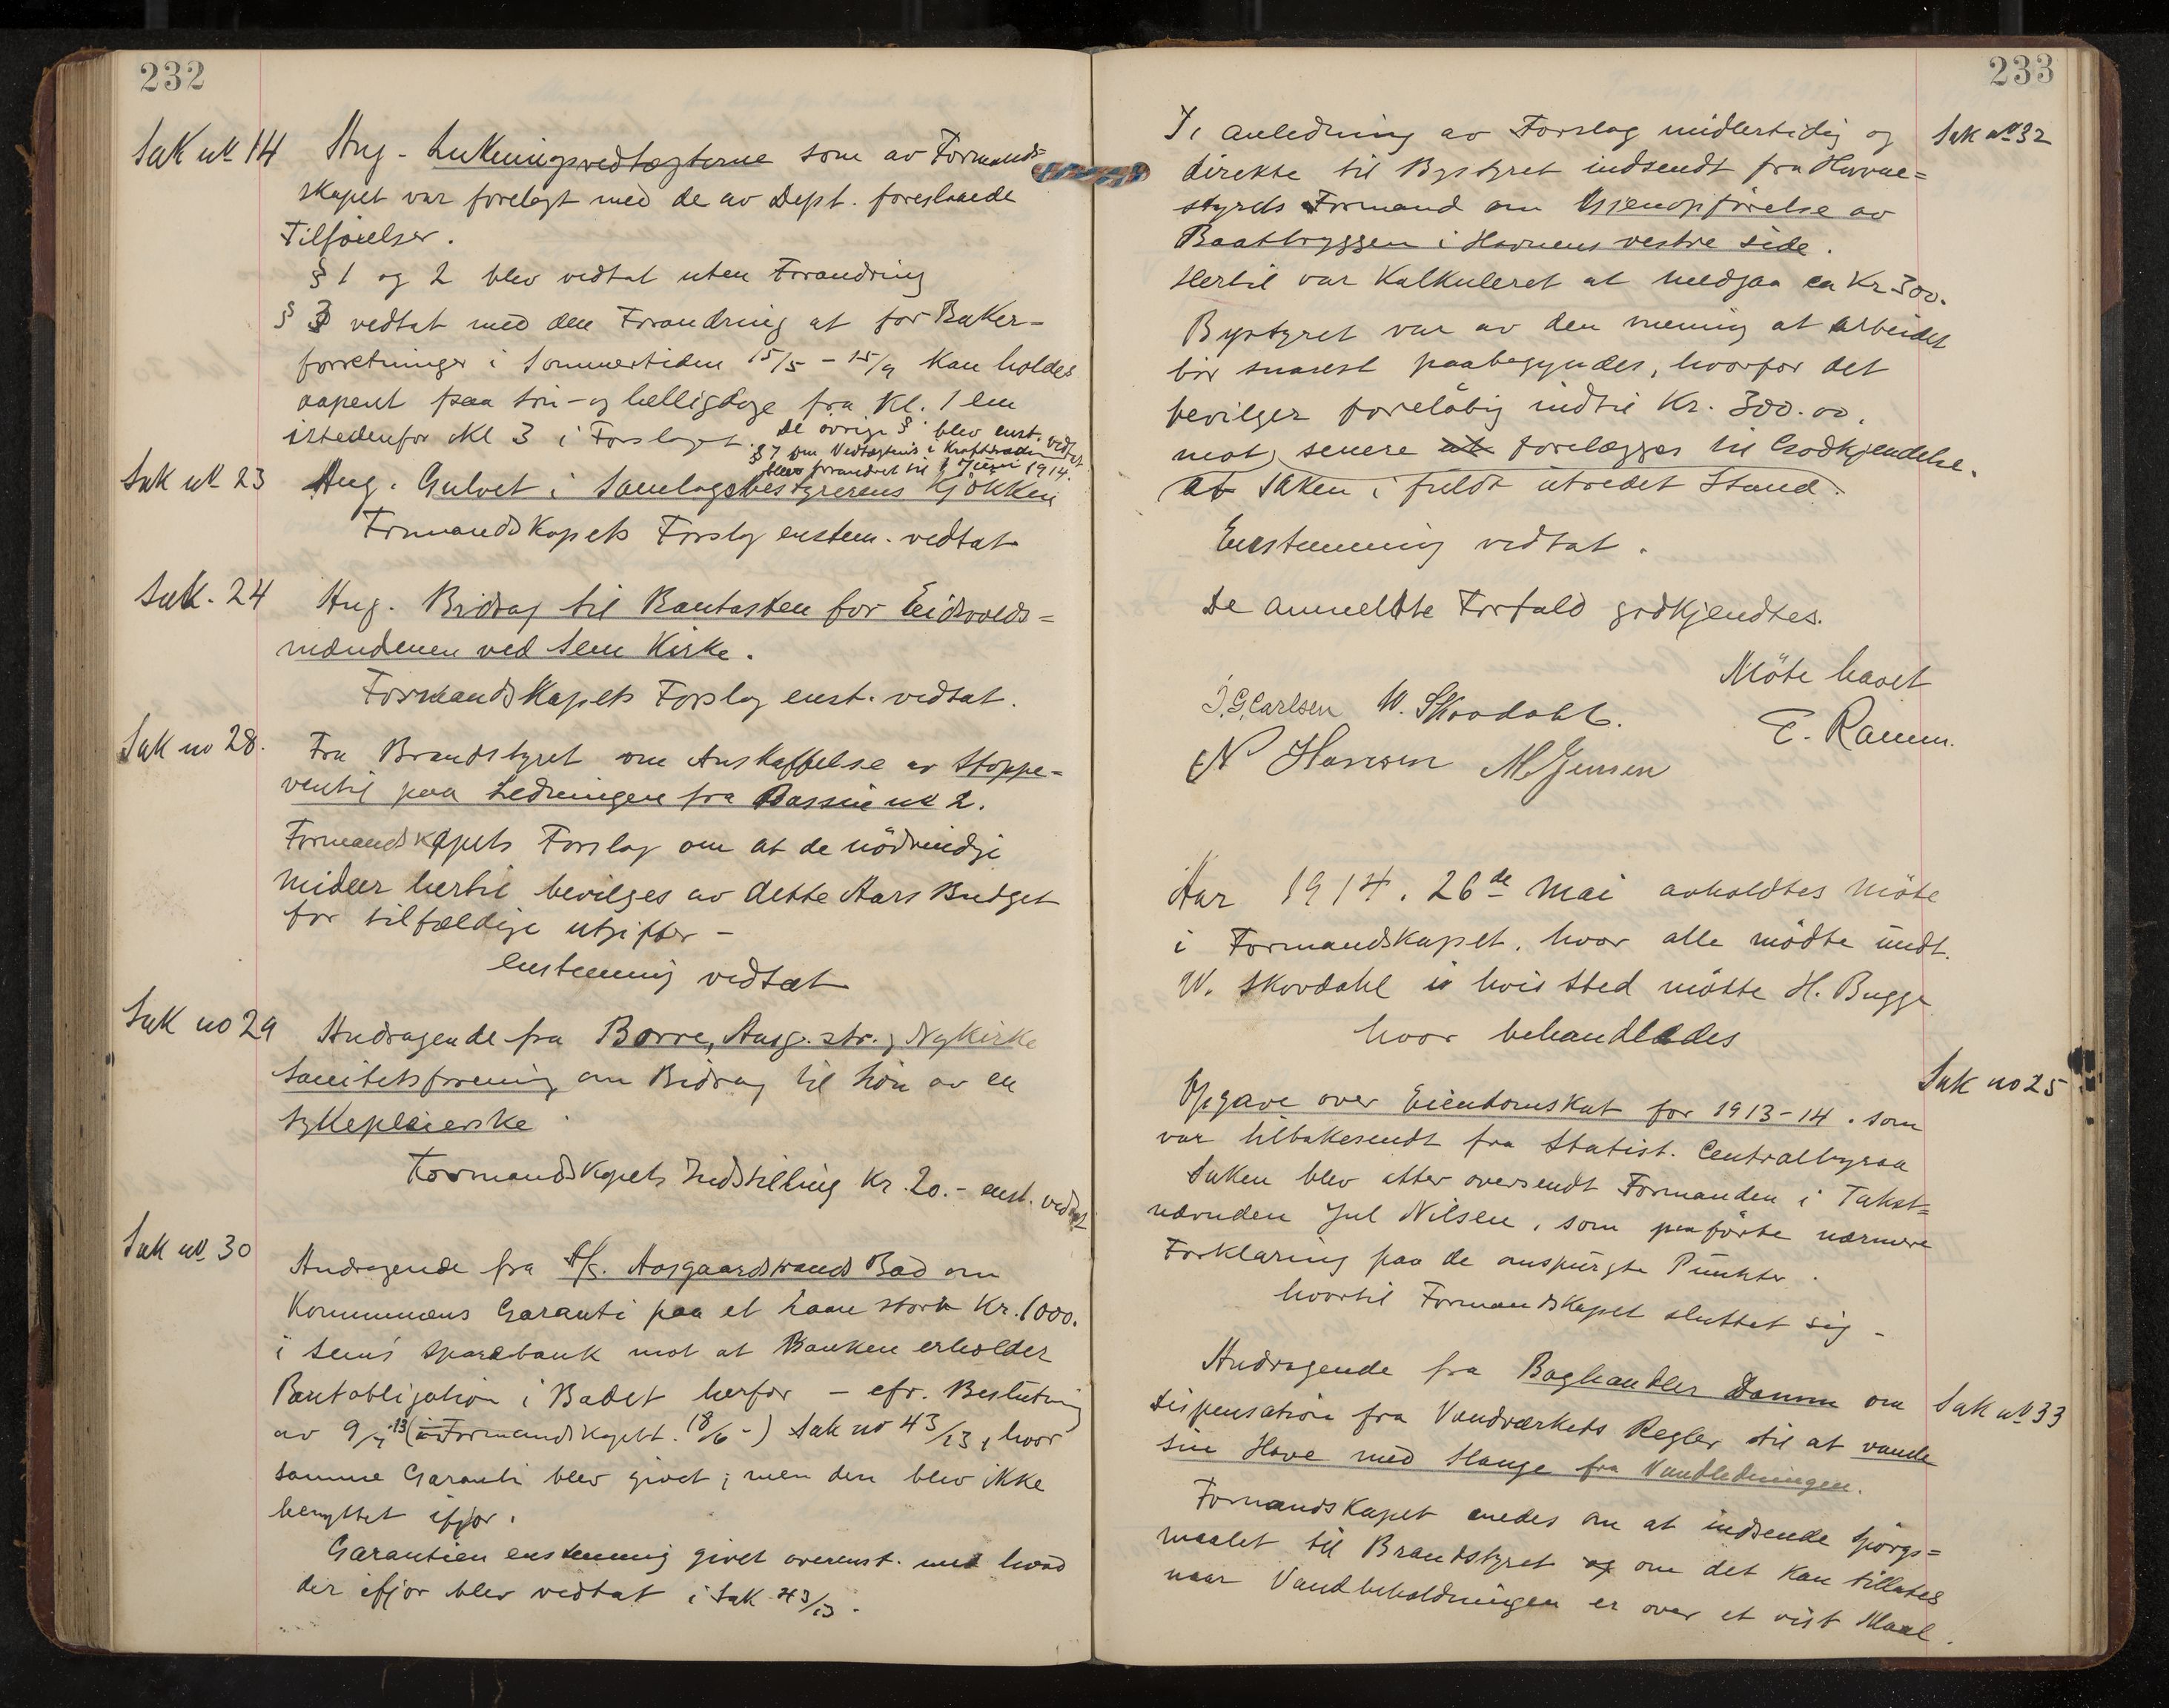 232
Sak no 14 Ang. Lukningsvedtægterne som av Formand=
skapet var forelagt med de av Dept. foreslaaede
Tilföielser.
§ 1 og 2 blev vedtat uten Forandring
§ 3 vedtat med den Forandring at for Baker-
forretninger i Sommertiden 15/5 - 15/9 kan holdes
aapent paa søn- og helligdage fra kl. 1 em
istedenfor Kl 3 i Forslaget. De övrige § blev enst. vedtat
§ 7 om Vedtægtens i Krafttræden
blev forandret til 1 Juni 1914.
Sak no 23 Ang. Gulvet i Samlagsbestyrerens Kjökken
Formandskapets Forslag enstem. vedtat
Sak. 24 Ang. Bidrag til Bautasten for Eidsvolds=
mændenen ved Sem Kirke.
Formandskapets Forslag enst. vedtat.
Sak no 28. Fra Brandstyret om Anskaffelse av Stoppe=
ventil paa Ledningen fra Bassin no 2.
Formandskapets Forslag om at de nödvendige
Midler hertil bevilges av dette Aars Budget
for tilfældige utgifter -
enstemmig vedtat
Sak no 29 Andragende fra Borre, Aasg. str. & Nykirke
Sanitetsforening om Bidrag til Lön av en
Sykepleierske
Formandskapets Indstilling Kr. 20.- enst. vedtat
Sak no 30 Andragende fra A/S. Aasgaardstrands Bad om
Kommunens Garanti paa et Laan stort Kr. 1000.
i Sem's Sparebank mot at Banken erholder
Pantobligation i Badet herfor - cfr. Beslutning
av 9/7 13 (i Formandskapet. 18/6 -) Sak no 43/13, hvor
samme Garanti blev givet; men den blev ikke
benyttet ifjor.
Garantien enstemmig givet overenst. med hvad
der ifjor blev vedtat i Sak 43/13.
233
I anledning av Forslag midlertidig og Sak no 32
direkte til Bystyret indsendt fra Havne=
styrets Formand om Gjenopförelse av
Baatbryggen i Havnens vestre side.
Hertil var Kalkuleret at medgaa ca Kr 300.
Bystyret var av den mening at arbeidet
bör snarest paabegyndes, hvorfor det
bevilger foreløbig indtil Kr. 300.00.
mot, senere at forelægges til Godkjendelse.
at Saken i fuldt utredet Stand.
Enstemmig vedtat.
De anmeldte Forfald godkjendtes.
Möte hævet
J. G. Carlsen W. Skovdahl. E. Ramm.
N Hansen M Jensen
Aar 1914. 26de Mai avholdtes Möte
i Formandskapet. hvor alle mödte undt.
W. Skovdahl i hvis Sted mötte H. Bugge
hvor behandledes
Opgave over Eiendomskat for 1913-14. som Sak no 25
var tilbakesendt fra Statist. Centralbyraa
Saken blev atter oversendt Formanden i Takst=
nævnden Jul Nilsen, som paaförte nærmere
Forklaring paa de anspurgte Punkter.
hvortil Formandskapet sluttet sig -
Andragende fra Boghandler Damm om Sak no 33
Dispensation fra Vandværkets Regler til at vande
sin Have med Slange fra Vandledningen.
Formandskapet enedes om at indsende Spörgs=
maalet til Brandstyret og om det kan tillates
naar Vandbeholdningen er over et vist Maal.